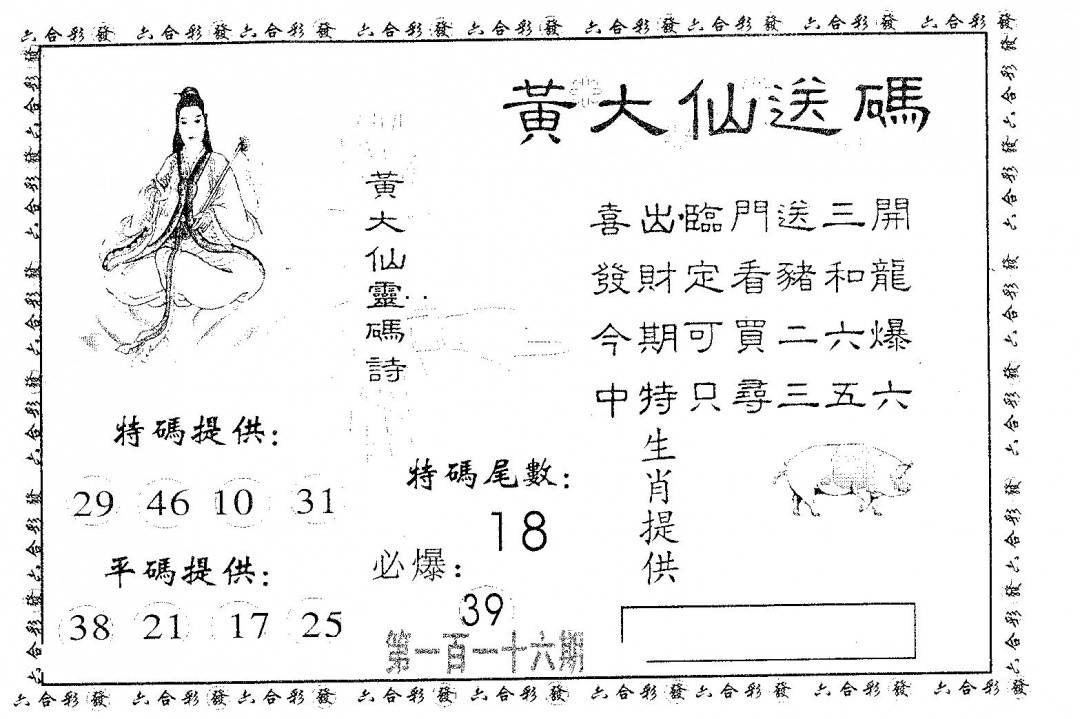 六合彩發 六合彩發六合彩發 六合彩發六合彩發 六合彩發六合彩發 六合彩發 六合彩發
黃大仙送碼
黃大仙靈碼詩
喜出臨門送三開
發財定看豬和龍
今期可買二六爆
中特只尋三五六
特碼提供:
29 46 10 31
平碼提供:
38 21 17 25
特碼尾數:
18
必爆:
39
第一百一十六期
生肖提供
六合彩發 六合彩發六合彩發 六合彩發六合彩發 六合彩發六合彩發 六合彩發 六合彩發